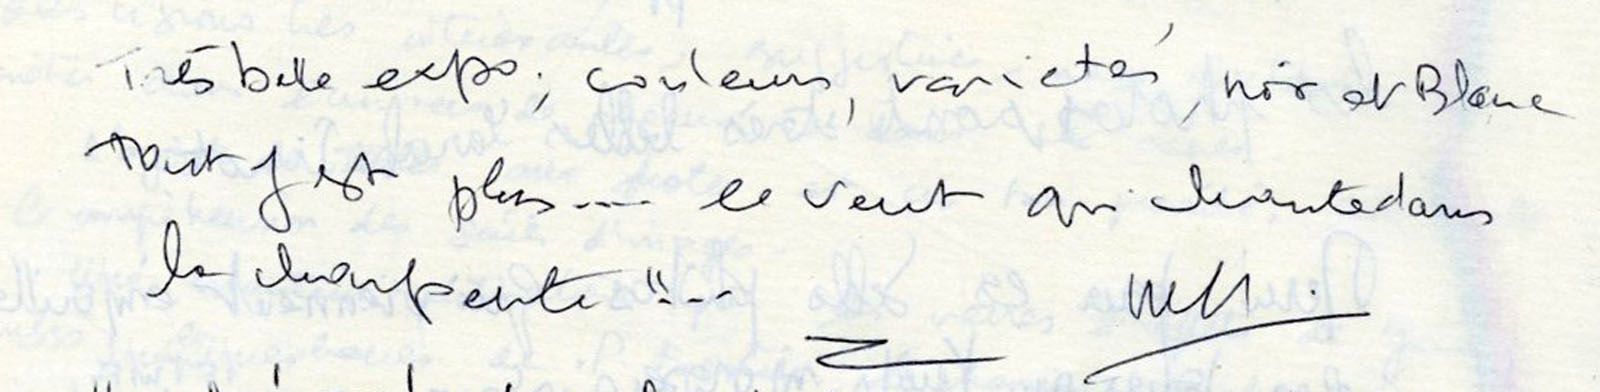 Très belle expo ; couleurs, variétés, noir et Blanc
tout y est plus.... le vent qui chante dans
la charpente !!...